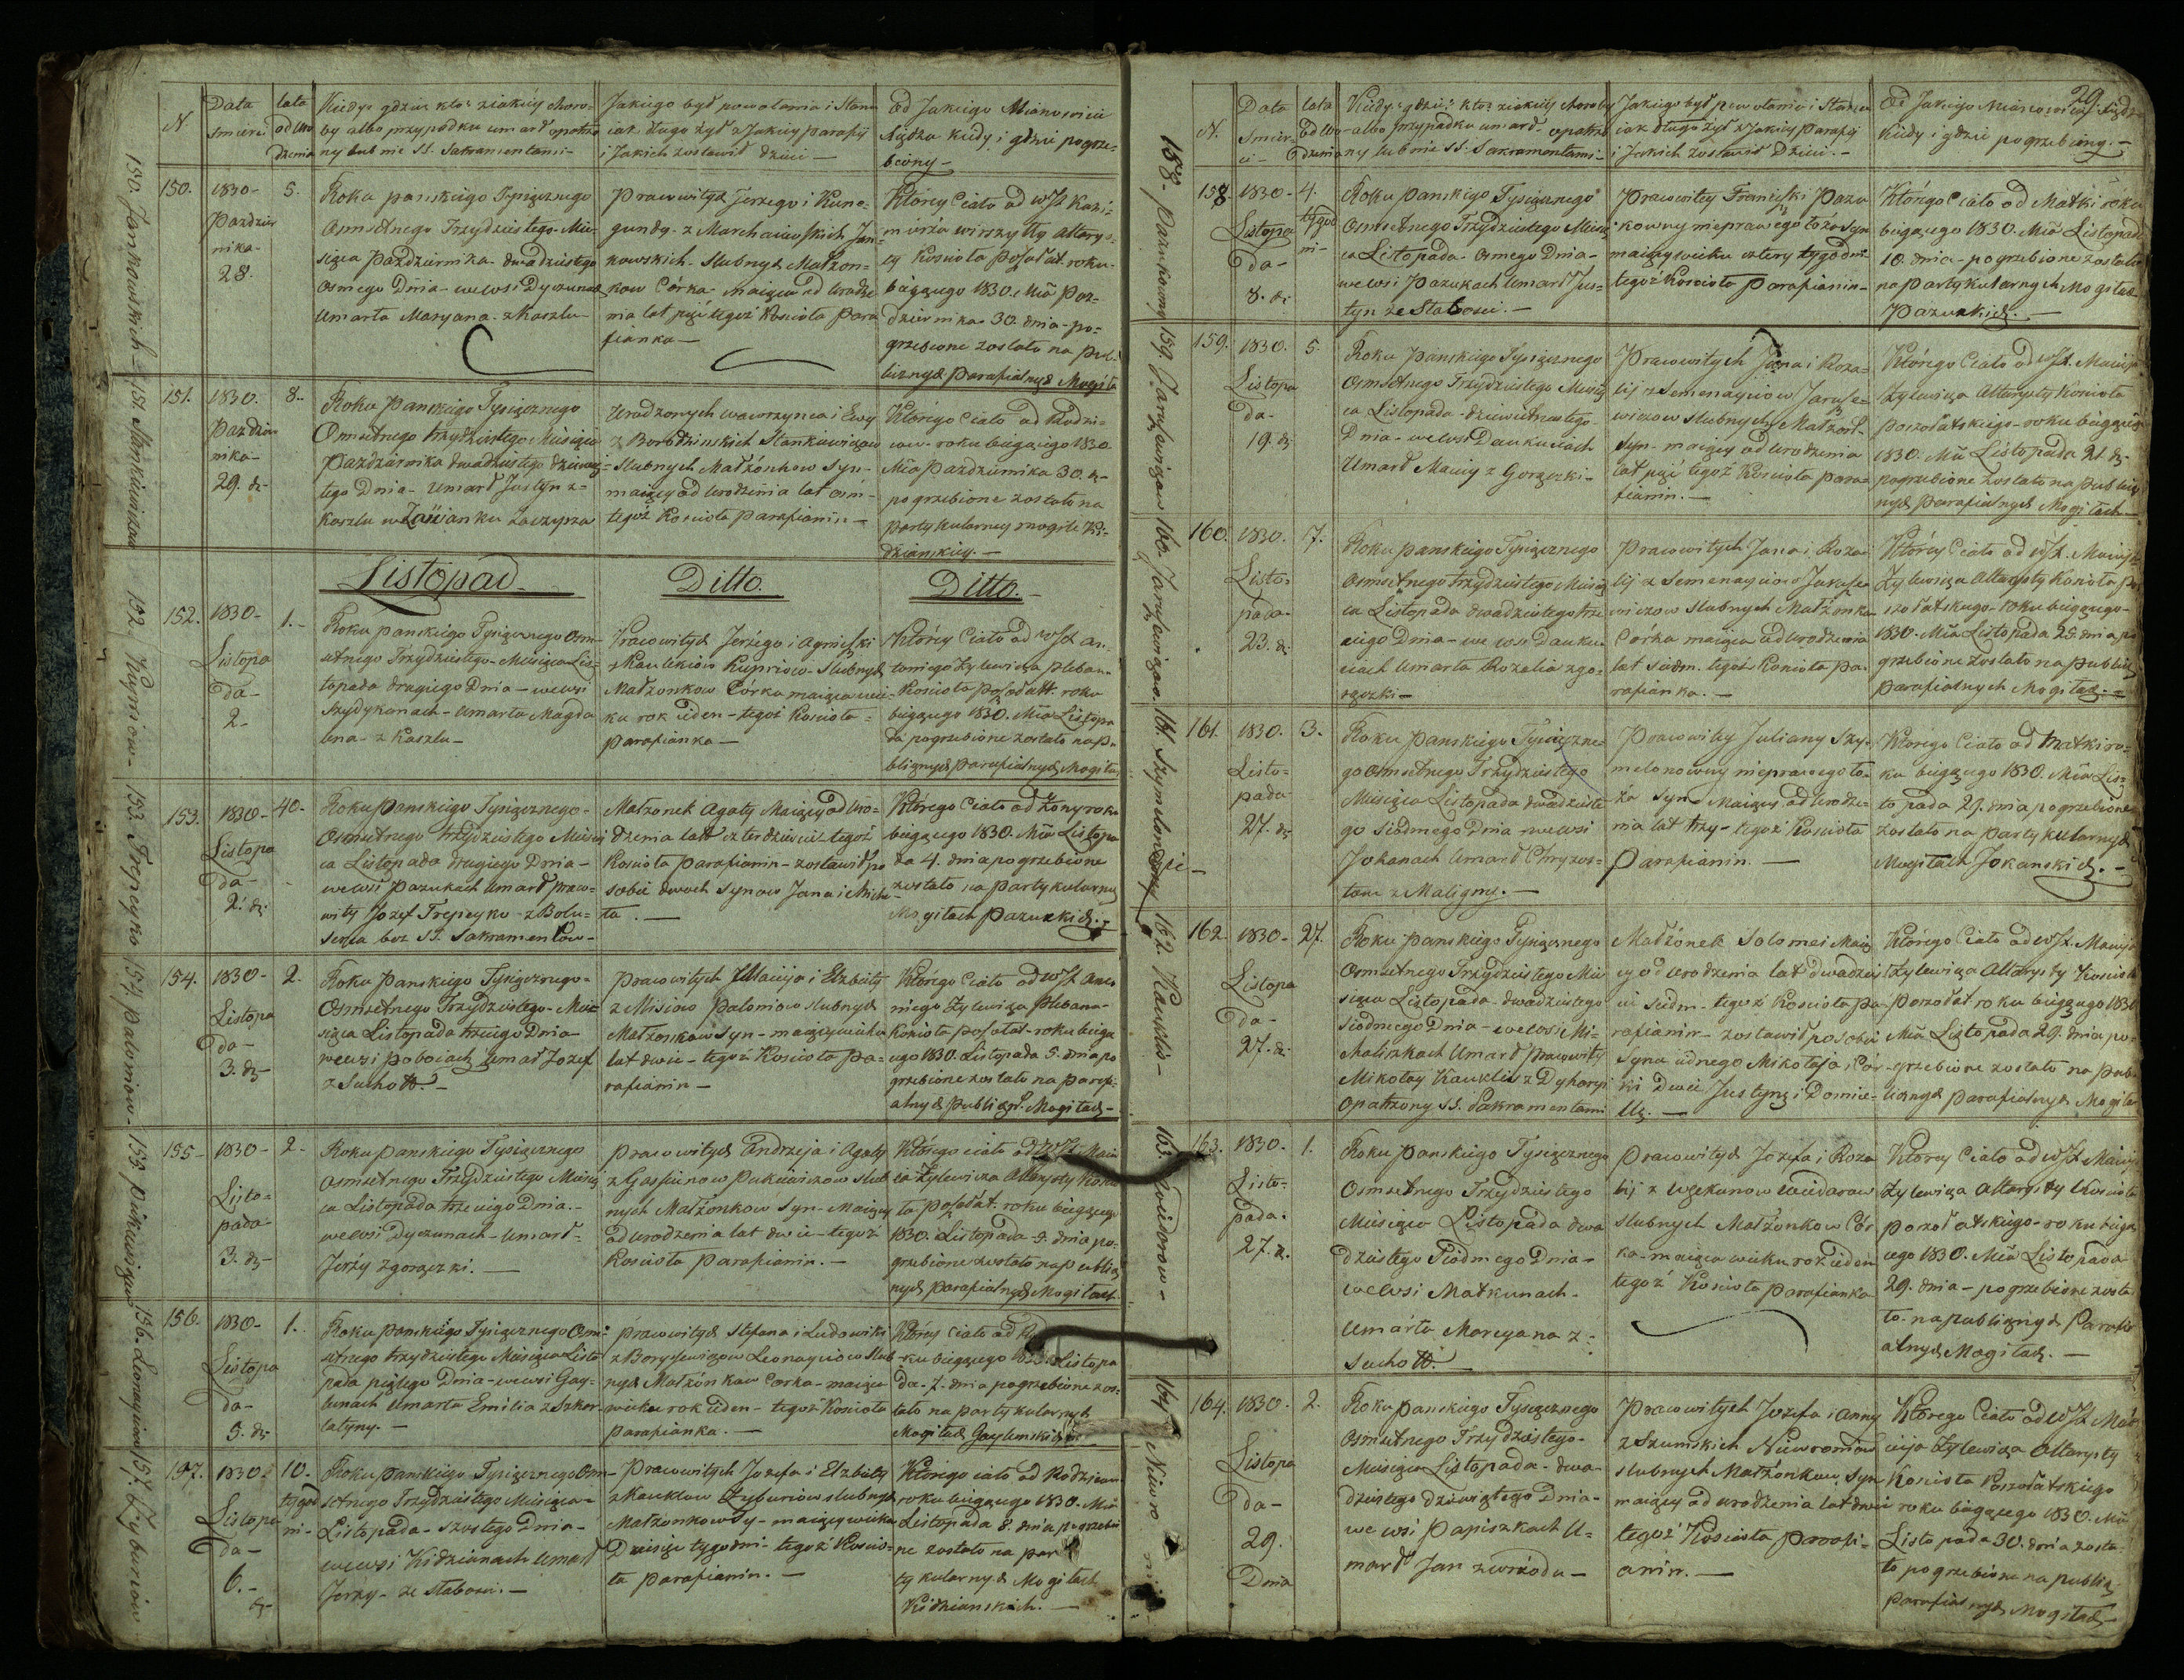 N
Data
Smierci
lata
od Uro
dzenia
Kiedy, gdzie, kto z iakiey choro=
by albo przypadku umarł opatrzo
ny lub nie SS. Sakramentami -
Jakiego był powołania i Stanu
iak długo żył z Jakiey parafij
i Jakich zostawił dzieci -
Od Jakiego Mianowicie
Xiędza kiedy i gdzie pogrze=
biony -
150.
1830-
Pazdzier
nika-
28.
5.
Roku panskiego Tysiącznego
Osmsetnego Trzydziestego Mie=
siąca Pazdziernika dwudziestego
osmego Dnia - we wsi Dyczunach
Umarła Maryana z Kaszlu -
Pracowitych Jerzego i Kune=
gundy z Marchaciewskich Jan=
kowskich Slubnych Małżon=
kow Corka maiąca od Urodze
nia lat pięć tegoż Kościoła Para
fianka -
Którey Ciało od WJX Kazi=
mierza altarys=
ty Kościoła posołat roku
bieżącego 1830. Mca Paz=
dziernika 30. dnia - po=
grzebione zostało na pub=
licznych parafialnych Mogiła
151.
1830.
Pazdzier
nika-
29. d.
8.
Roku Panskiego Tysiącznego
Osmsetnego trzydziestego Miesiąca
Pazdziernika dwudziestego dziewią=
tego Dnia - Umarł Justyn z=
Kaszlu w Zaścianku
Urodzonych Wawrzynca i Ewy
z Borodzinskich Stankiewiczow
Slubnych Małżonkow Syn -
maiący od Urodzenia lat osm -
tegoż Kościoła parafianin -
Którego Ciało od Rodzi=
cow roku bieżącego 1830
Mca Pazdziernika 30. d.
pogrzebione zostało na
partykularney mogile Ki=
dzianskiey. -
Listopad -
Ditto.
Ditto. -
152.
1830-
Listopa
da-
2.
1.-
Roku panskiego Tysiącznego Osm=
setnego Trzydziestego Miesiąca Lis=
topada drugiego Dnia - we wsi
Szydykanach - Umarła Magda
lena z Kaszlu -
Pracowitych Jerzego i Agnieszki
z Kauklisow Kupriow Slubnych
Małżonkow Córka maiąca wie=
ku rok ieden - tegoż Kościoła =
parafianka -
Którey Ciało od WJX An=
toniego Żylewicza plebana
Kościoła posołatt. roku
bieżącego 1830. Mca Listopa
da pogrzebione zostało na pu=
blicznych parafialnych Mogiłach
153.
1830-
Listopa
da-
2. d.
40-
Roku Panskiego Tysiącznego -
Osmsetnego trzydziestego Miesią
ca Listopada drugiego Dnia -
we wsi Pazukach Umarł praco=
wity Jozef Trepieyko z Bolu=
senia bez SS. Sakramentow -
Małżonek Agaty Maiący od Uro=
dzenia lat czterdzieście - tegoż
Kościoła parafianin - zostawił po
sobie dwoch Synow Jana i Micha=
ła. -
Którego Ciało od żony roku
bieżącego 1830. Mca Listopa
da 4. dnia pogrzebione
zostało na partykularnych
Mogiłach Pazuckich. -
154.
1830-
Listopa
da-
3. d.
2.
Roku Panskiego Tysiącznego -
Osmsetnego Trzydziestego Mie=
siąca Listopada trzeciego Dnia
we wsi Pobociach Umarł Jozef
z Suchott. -
Pracowitych Macieja i Elzbiety
z Misiow Paloniow slubnych
Małżonkow Syn - maiący wieku
lat dwie - tegoż Kościoła pa=
rafianin -
Którego Ciało od WJX Anto
niego Żylewicza Plebana
Kościoła posołat roku bieżą
cego 1830. Listopada 5. dnia po
grzebione zostało na parafi=
alnych publicznych Mogiłach -
155-
1830-
Listo=
pada-
3. d.
2-
Roku panskiego Tysiącznego
Osmsetnego Trzydziestego Miesią
ca Listopada trzeciego Dnia. -
we wsi Dyczunach - Umarł =
Jerzy z gorączki. -
Pracowitych Andrzeja i Agaty
z Gasiunow Pukiewiczow slub
nych Małżonkow Syn - Maiący
od urodzenia lat dwie - tegoż
Kościoła parafianin. -
Którego ciało od WJX Maci
ia Żylewicza Altarysty Kościo
ła posołat. roku bieżącego
1830. Listopada 5. dnia po=
grzebione zostało na publicz
nych parafialnych Mogiłach
156.
1830-
Listopa
da-
5. d.
1.
Roku Panskiego Tysiącznego Osm=
setnego trzydziestego Miesiąca Listo
pada piątego Dnia - we wsi Gay=
lunach Umarła Emilia z Szkar
latyny. -
Pracowitych Stefana i Ludowiki
z Borysewiczow Leonayciow Slub
nych Małżonkow Corka - maiąca
wieku rok ieden - tegoż Kościoła
parafianka. -
Którey Ciało od
ku bieżącego 1830 Listopa
da 7. dnia pogrzebione zos=
tało na partykularnych
Mogiłach Gaylunskich
157.
1830.
Listopa
da-
6.-
d.
10.
tygod
ni-
Roku Panskiego Tysiącznego Osm=
setnego Trzydziestego Miesiąca =
Listopada - szostego Dnia -
we wsi Kidzianach Umarł
Jerzy - ze słabosci. -
Pracowitych Jozefa i Elzbiety
z Kauklow Cyburiow slubnych
Małżonkow Syn - maiący wieku
Dziesięć tygodni - tegoż Kościo=
ła parafianin. -
Którego ciało od Rodzicow
roku bieżącego 1830. Mca
Listopada 8. dnia pogrzebio
ne zostało na par
tykularnych Mogiłach
Kidzianskich. -
150. Jankowskich - 151. Stankiewiczow 152. Kupriow - 153. Trepieyko 154. Paloniow - 155. Pukiewiczow 156. Leonayciow 157. Cyburiow
29.
N.
Data
Smier=
ci-
lata
od Uro
dzenia
Kiedy, gdzie, kto z iakiey choroby
albo przypadku umarł opatrzo
ny lub nie SS. Sakramentami -
Jakiego był powołania i Stanu
iak długo żył z Jakiey parafij
i Jakich zostawił Dzieci. -
Od Jakiego Mianowicie Xiędza
kiedy i gdzie pogrzebiony. -
158
1830-
Listopa
da-
8. d.
4.
tygod
ni-
Roku Panskiego Tysiącznego
Osmsetnego Trzydziestego Miesią
ca Listopada - Osmego Dnia -
we wsi Pazukach Umarł Jus=
tyn ze Słabosci. -
Pracowitey Franciszki Pazu
kowny nieprawego łoża Syn
maiący wieku cztery tygodni
tegoż Kościoła Parafianin -
Którego Ciało od Matki roku
bieżącego 1830. Mca Listopada
10. dnia - pogrzebione zostało
na partykularnych Mogiłach
Pazuckich. -
159.
1830.
Listopa
da-
19. d.
5.
Roku Panskiego Tysiącznego
Osmsetnego Trzydziestego Miesią
ca Listopada - dziewiętnastego
Dnia - we wsi Daukuciach
Umarł Maciey z Gorączki -
Pracowitych Jana i Roza=
lij z Semenayciow Jarase=
wiczow slubnych Małżon=
Syn - maiący od Urodzenia
lat pięć tegoż Kościoła para=
fianin. -
Którego Ciało od WJX. Macieja
Żylewicza Altarysty Kościoła
poszołatskiego - roku bieżącego
1830. Mca Listopada 21. d.
pogrzebione zostało na publicz
nych parafialnych Mogiłach -
160.
1830.
Listo=
pada-
23. d.
7.
Roku panskiego Tysiącznego
Osmsetnego trzydziestego Miesią
ca Listopada dwudziestego trze
ciego Dnia - we wsi Dauku=
ciach Umarła Rozalia z go=
rączki -
Pracowitych Jana i Roza
lij z Semenayciow Jarase
wiczow slubnych Małżonkow
Córka maiąca od Urodzenia
lat siedm. tegoż Kościoła pa=
rafianka. -
Którey Ciało od WJX. Macieja
Żylewicza Altarysty Kościoła po=
szołatskiego - roku bieżącego -
1830. Mca Listopada 25 dnia po
grzebione zostało na publicz
parafialnych Mogiłach. -
161.
1830.
Listo=
pada-
27. d.
3.
Roku Panskiego Tysiączne=
go Osmsetnego Trzydziestego
Miesiąca Listopada dwudzieste=
go siodmego Dnia we wsi
Jokanach Umarł Chryzos=
tom z Maligny. -
Pracowitey Juliany Szy=
melonowny nieprawego ło=
ża Syn - Maiący od Urodze=
nia lat trzy - tegoż Kościoła
Parafianin. -
Którego Ciało od Matki ro=
ku bieżącego 1830. Mca Lis=
topada 29. dnia pogrzebione
zostało na partykularnych
Mogiłach Jokanskich. -
162.
1830-
Listopa
da-
27. d.
27.
Roku Panskiego Tysiącznego
Osmsetnego Trzydziestego Mie
siąca Listopada - dwudziestego
siodmego Dnia - we wsi Mi=
chaliszkach Umarł pracowity
Mikołay Kauklis z Dyharyi
Opatrzony SS. Sakramentami
Małżonek Salomei Maią
cy od Urodzenia lat dwadzieś
cia siedm - tegoż Kościoła pa=
rafianin - zostawił po sobie
Syna iednego Mikołaja, Cor=
ki Dwie Justynę i Domice=
lę. -
Którego Ciało od WJX. Macieja
Żylewicza Altarysty Kościoła
poszołat roku bieżącego 1830
Mca Listopada 29. dnia po=
grzebione zostało na pub=
licznych parafialnych Mogiłach
163.
1830.
Listo=
pada.
27. d.
1.
Roku Panskiego Tysiącznego
Osmsetnego Trzydziestego
Miesiąca Listopada dwu
dziestego Siodmego Dnia -
we wsi Matkunach -
Umarła Maryana z
Suchott. -
Pracowitych Jozefa i Roza
lij z Wickunow Gwidarow
slubnych Małżonkow Cór
ka - maiąca wieku rok ieden
tegoż Kościoła Parafianka
Którey Ciało od WJX Macieja
Żylewicza Altarysty Kościoła
poszołatskiego - roku bieżą
cego 1830. Mca Listopada
29. dnia - pogrzebione zosta
ło na publicznych Parafi
alnych Mogiłach. -
164.
1830.
Listopa
da-
29.
Dnia
2.
Roku panskiego Tysiącznego
Osmsetnego Trzydziestego -
Miesiąca Listopada - dwu=
dziestego dziewiątego Dnia -
we wsi Papiszkach U=
marł Jan z wrzodu -
Pracowitych Jozefa i Anny
z Szumskich Niewroniow
slubnych Małżonkow Syn
maiący od urodzenia lat dwie
tegoż Kościoła parafi=
anin. -
Którego Ciało od WJX Ma=
cieja Żylewicza Altarysty
Kościoła Poszołatskiego
roku bieżącego 1830. Mca
Listopada 30. dnia zosta=
ło pogrzebione na publicz
parafialnych Mogiłach -
158. Pazukowny 159. Jarasewiczow 160. Jarasewiczow 161. Szymelonowny 162. Kauklis - 163. Gwidarow - 164. Niewro